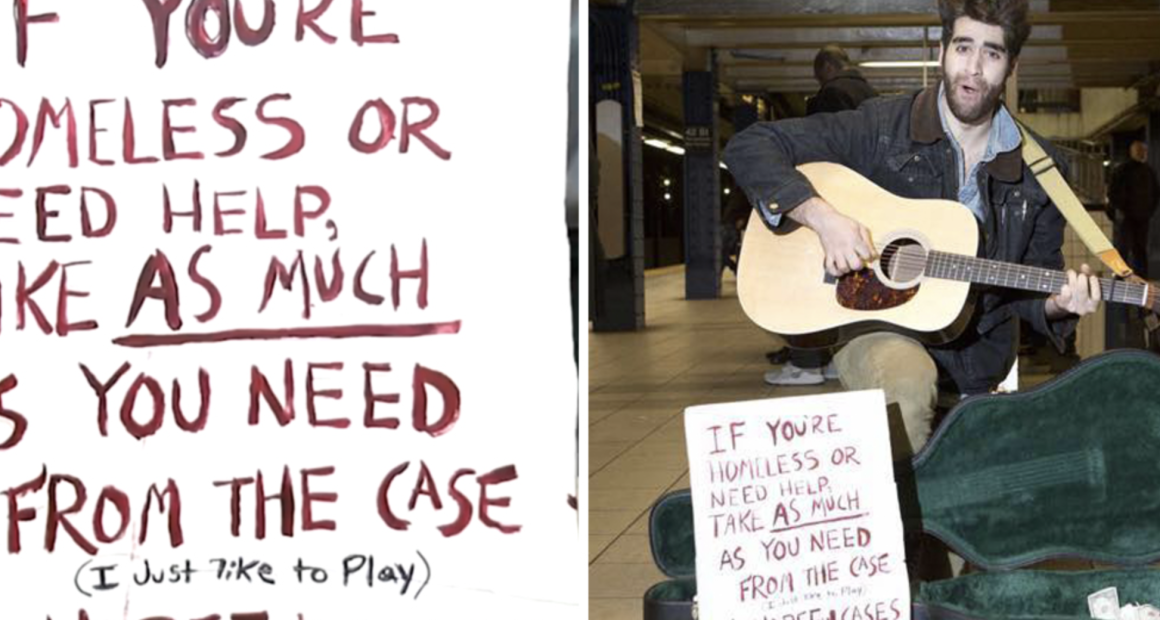 F YOU'RE
OMELESS OR
EED HELP,
KE AS MUCH
S YOU NEED
FROM THE CASE
(I Just like to Play)
42 St
IF YOU'RE
HOMELESS OR
NEED HELP,
TAKE AS MUCH
AS YOU NEED
FROM THE CASE
(I Just like to Play)
CASES